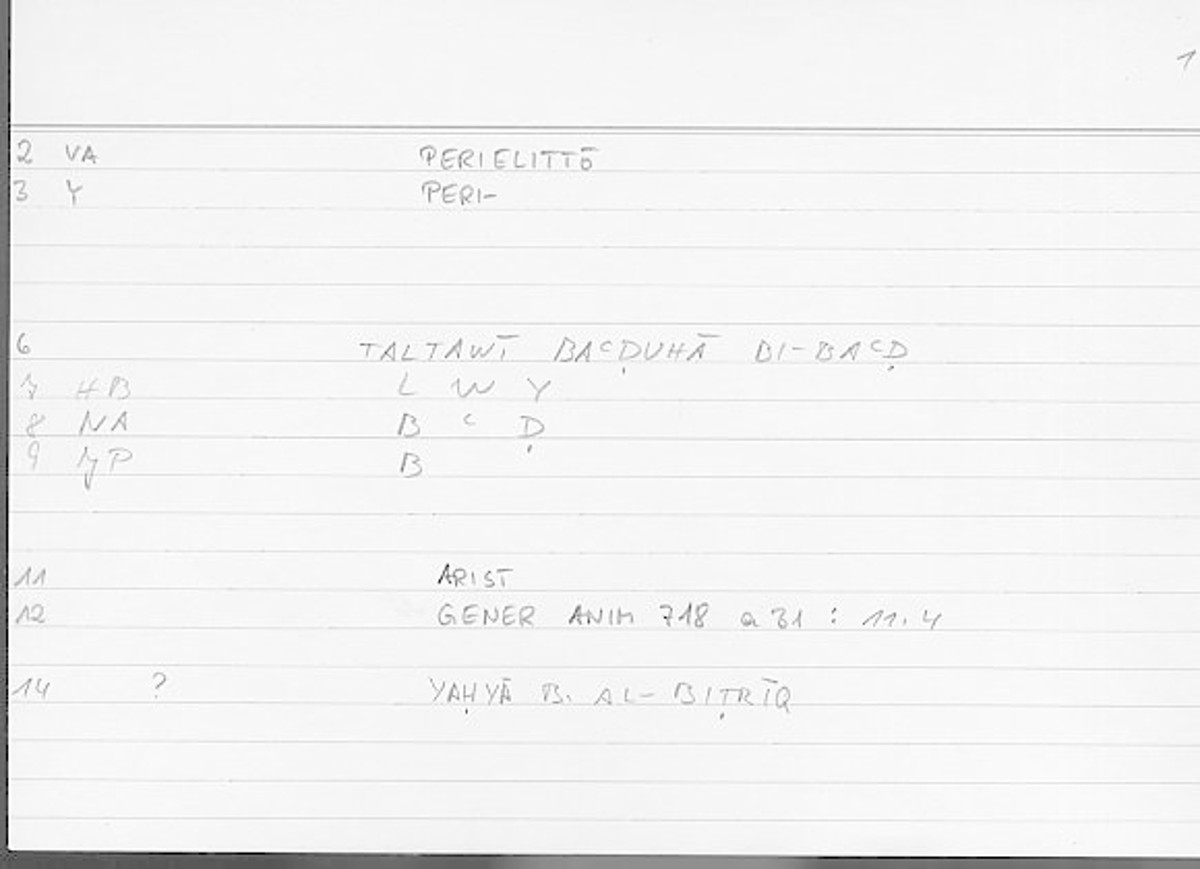 1
2 VA PERIELITTŌ
3 Y PERI-
6 TALTAWĪ BAᶜḌUHĀ BI-BAᶜḌ
7 HB L W Y
8 NA B ᶜ Ḍ
9 JP B
11 ARIST
12 GENER ANIM 718 a 31 : 11.4
14 ? YAḤYĀ B. AL-BIṬRĪQ